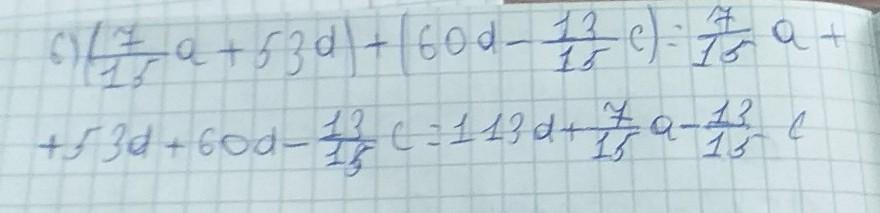 б) (7/15 a + 53d) + (60d - 13/15 c) = 7/15 a +
+ 53d + 60d - 13/15 c = 113d + 7/15 a - 13/15 c